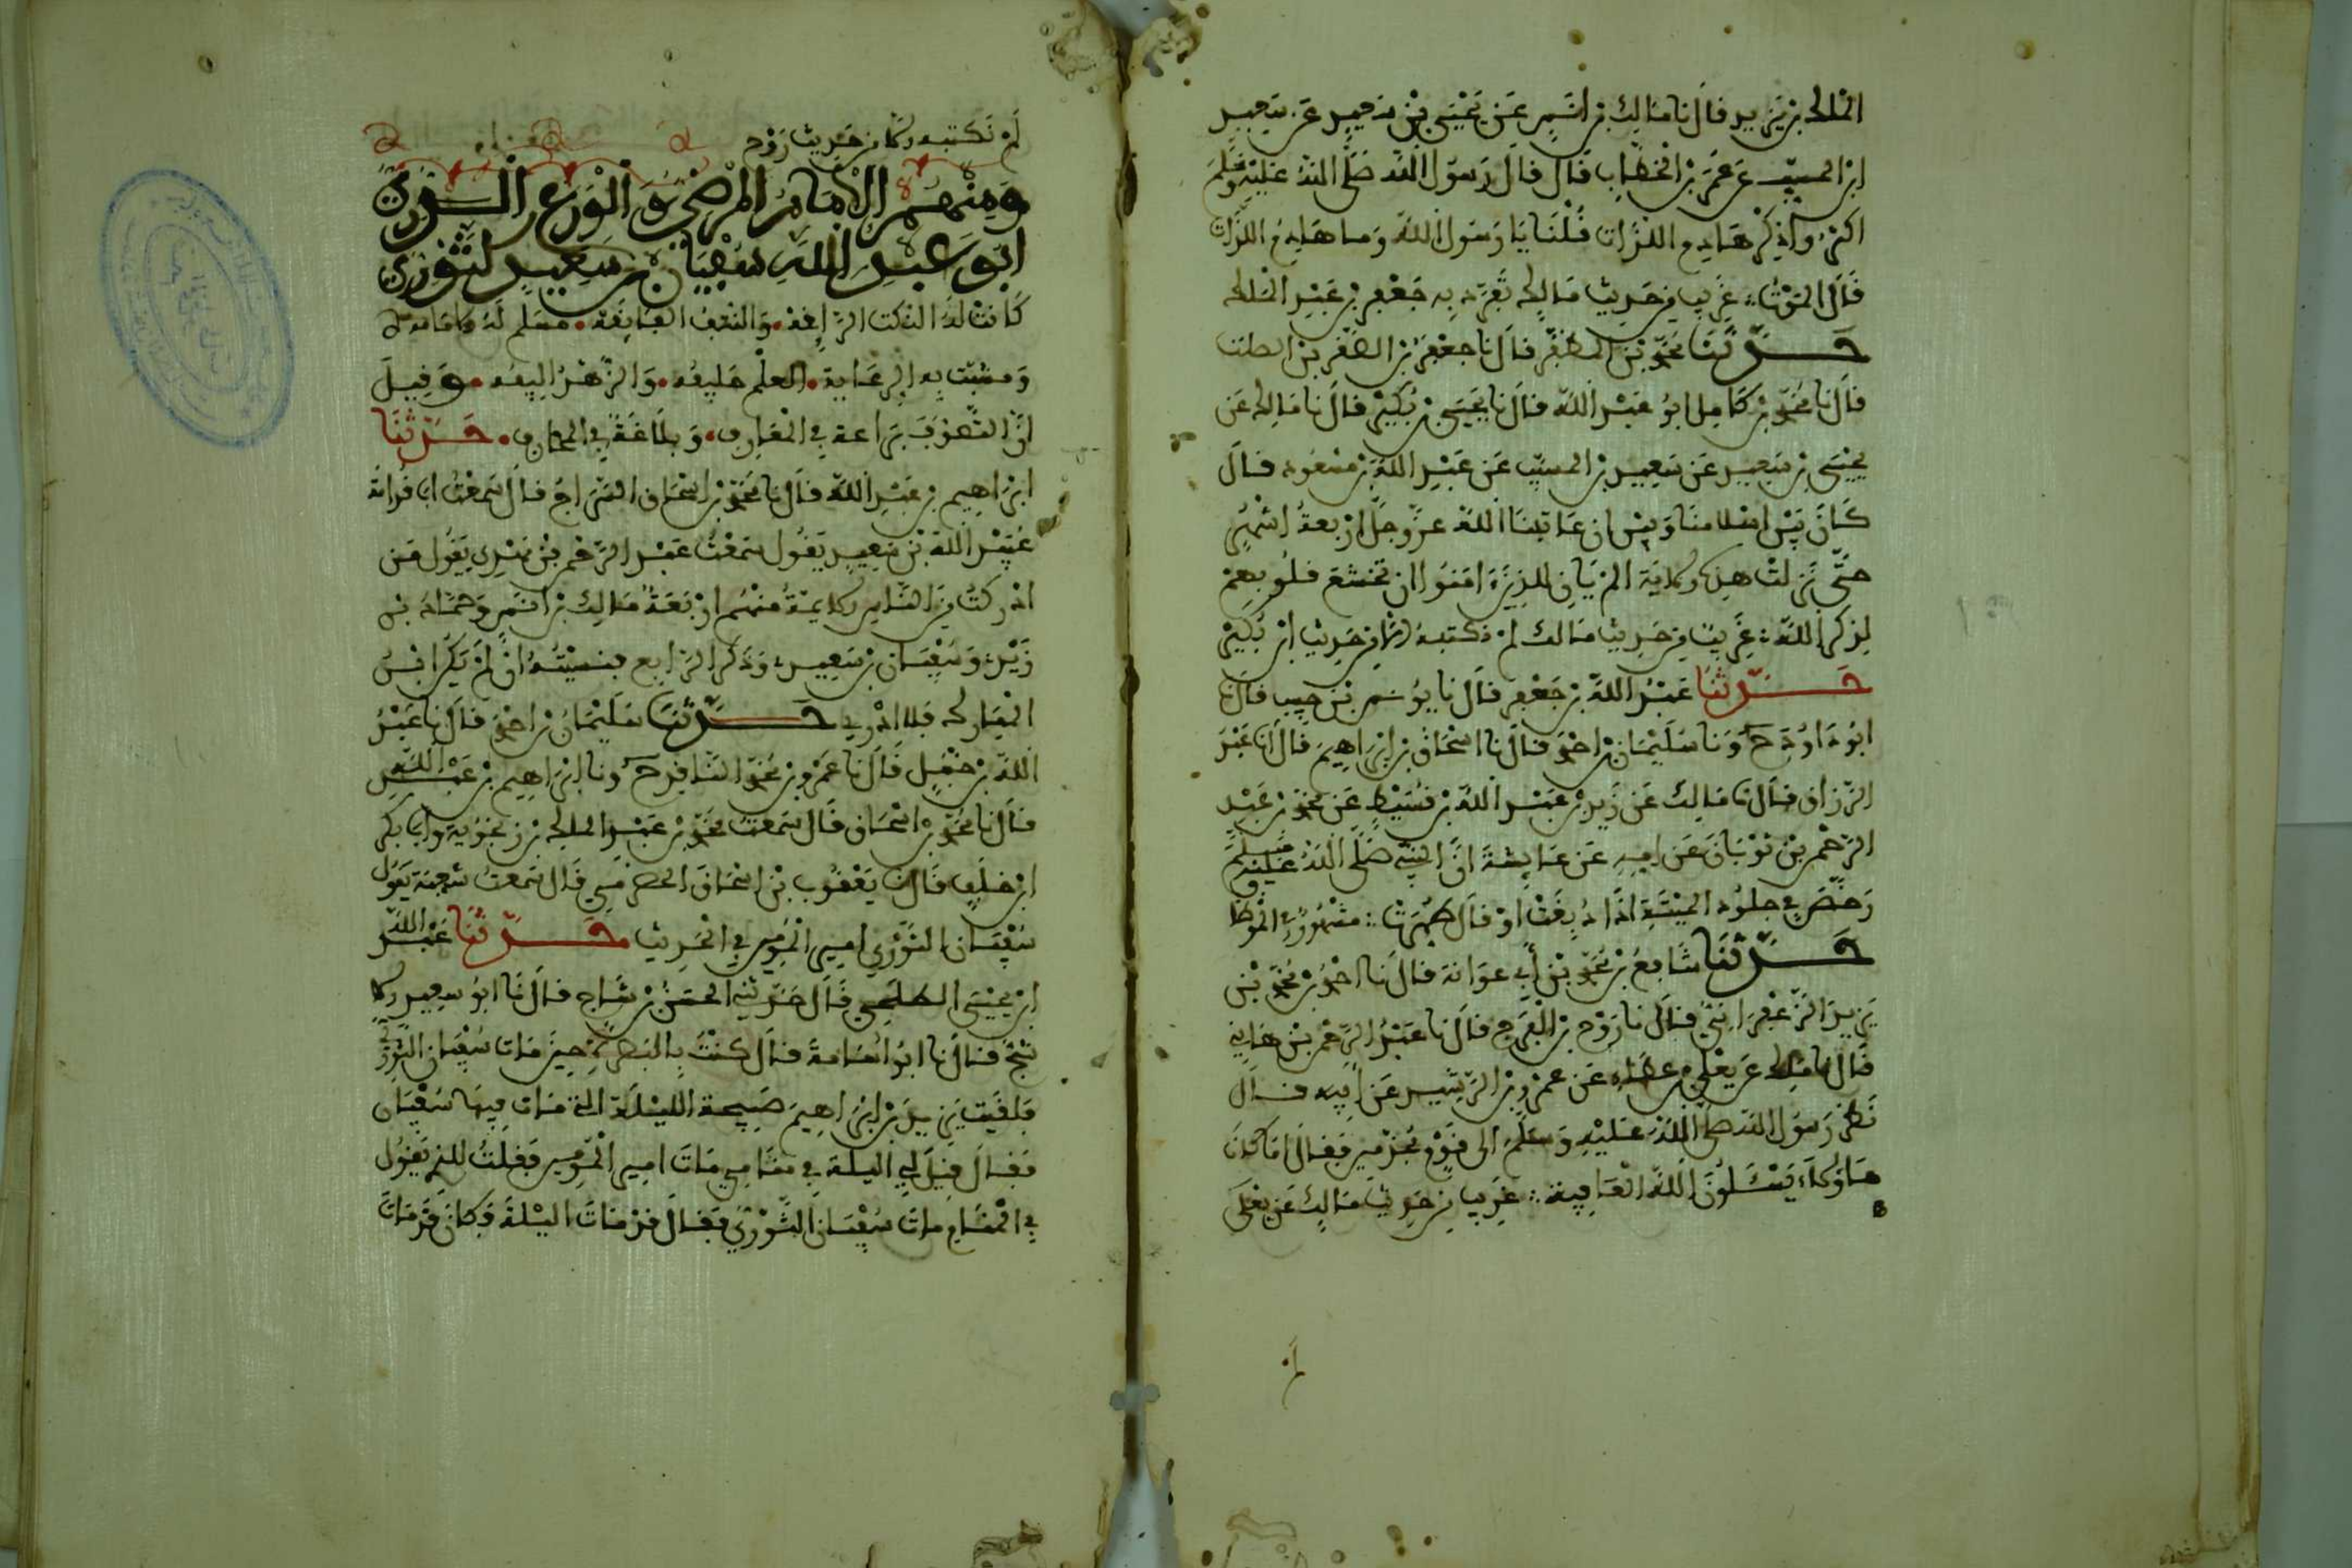 الملك بن يزيد قال نا مالك بن انس عن يحيى بن سعيد عن سعيد
ابن المسيب عن عمر بن الخطاب قال قال رسول الله صلى الله عليه وسلم
اكثروا ذكر هادم اللذات قلنا يا رسول الله وما هادم اللذات
قال الموت غريب من حديث مالك تفرد به جعفر بن عبد الملك
حدثنا محمد بن المظفر قال نا جعفر بن الصقر بن الصلت
قال نا محمد بن كامل ابو عبد الله قال نا يحيى بن بكير قال نا مالك عن
يحيى بن سعيد عن سعيد بن المسيب عن عبد الله بن مسعود قال
كان بين اسلامنا وبين ان عاتبنا الله عز وجل اربعة اشهر
حتى نزلت هذه الاية الم يان للذين امنوا ان تخشع قلوبهم
لذكر الله غريب من حديث مالك لم نكتبه الا من حديث ابن بكير
حدثنا عبد الله بن جعفر قال نا يونس بن حبيب قال نا
ابو داود ح ونا سليمان بن احمد قال نا اسحاق بن ابراهيم قال انا عبد
الرزاق قال نا مالك عن زيد بن عبد الله بن قسيط عن محمد بن عبد
الرحمن بن ثوبان عن امه عن عايشة ان النبي صلى الله عليه وسلم
رخص في جلود الميتة اذا دبغت او قال طهرت مشهور في الموطا
حدثنا شافع بن محمد بن أبي عوانة قال نا احمد بن محمد بن
يزيد الزعفراني قال نا روح بن الفرج قال نا عبد الرحمن بن هاني
قال نا مالك عن يعلى بن عطاء عن عمرو بن الشريد عن ابيه قال
نظر رسول الله صلى الله عليه وسلم الى قوم مجذمين فقال اما كان
هاولاء يسئلون الله العافية غريب من حديث مالك عن يعلى
لم نكتبه الا من حديث روح
ومنهم الامام المرضي والورع الدري
ابو عبد الله سفيان بن سعيد الثوري
كانت له النكت الرايقة والنتف الفايقة مسلم له في الامامة
ومثبت به الرعاية العلم حليفه والزهد اليفه وقيل
ان التصوف براعة في المعارف وبلاغة في المخاوف حدثنا
ابراهيم بن عبد الله قال نا محمد بن اسحاق السراج قال سمعت ابا قدامة
عبيد الله بن سعيد يقول سمعت عبد الرحمن بن مهدي يقول من
ادركت من الناس الايمة منهم اربعة مالك بن انس وحماد بن
زيد وسفيان بن سعيد وذكر الرابع فنسيته ان لم يكن ابن
المبارك فلا ادري حدثنا سليمان بن احمد قال نا عبد
الله بن حنبل قال نا عمرو بن محمد الناقد ح ونا ابراهيم بن عبد الله
قال نا محمد بن اسحاق قال سمعت محمد بن عبد الملك بن زنجويه وابا بكر
ابن خلف قالا نا يعقوب بن اسحاق الحضرمي قال سمعت شعبة يقول
سفيان الثوري امير المومنين في الحديث حدثنا عبد الله
ابن يحيى الطلحي قال حدثني الحسن بن قال نا ابو سعيد الا
شج قال نا ابو اسامة قال كنت بالبصرة حين مات سفيان الثوري
فلقيت يزيد بن ابراهيم صبيحة الليلة التي مات فيها سفيان
فقال قيل لي الليلة في منامي مات امير المومنين فقلت للذي يقول
في المنام مات سفيان الثوري فقال قد مات الليلة وكان قد مات